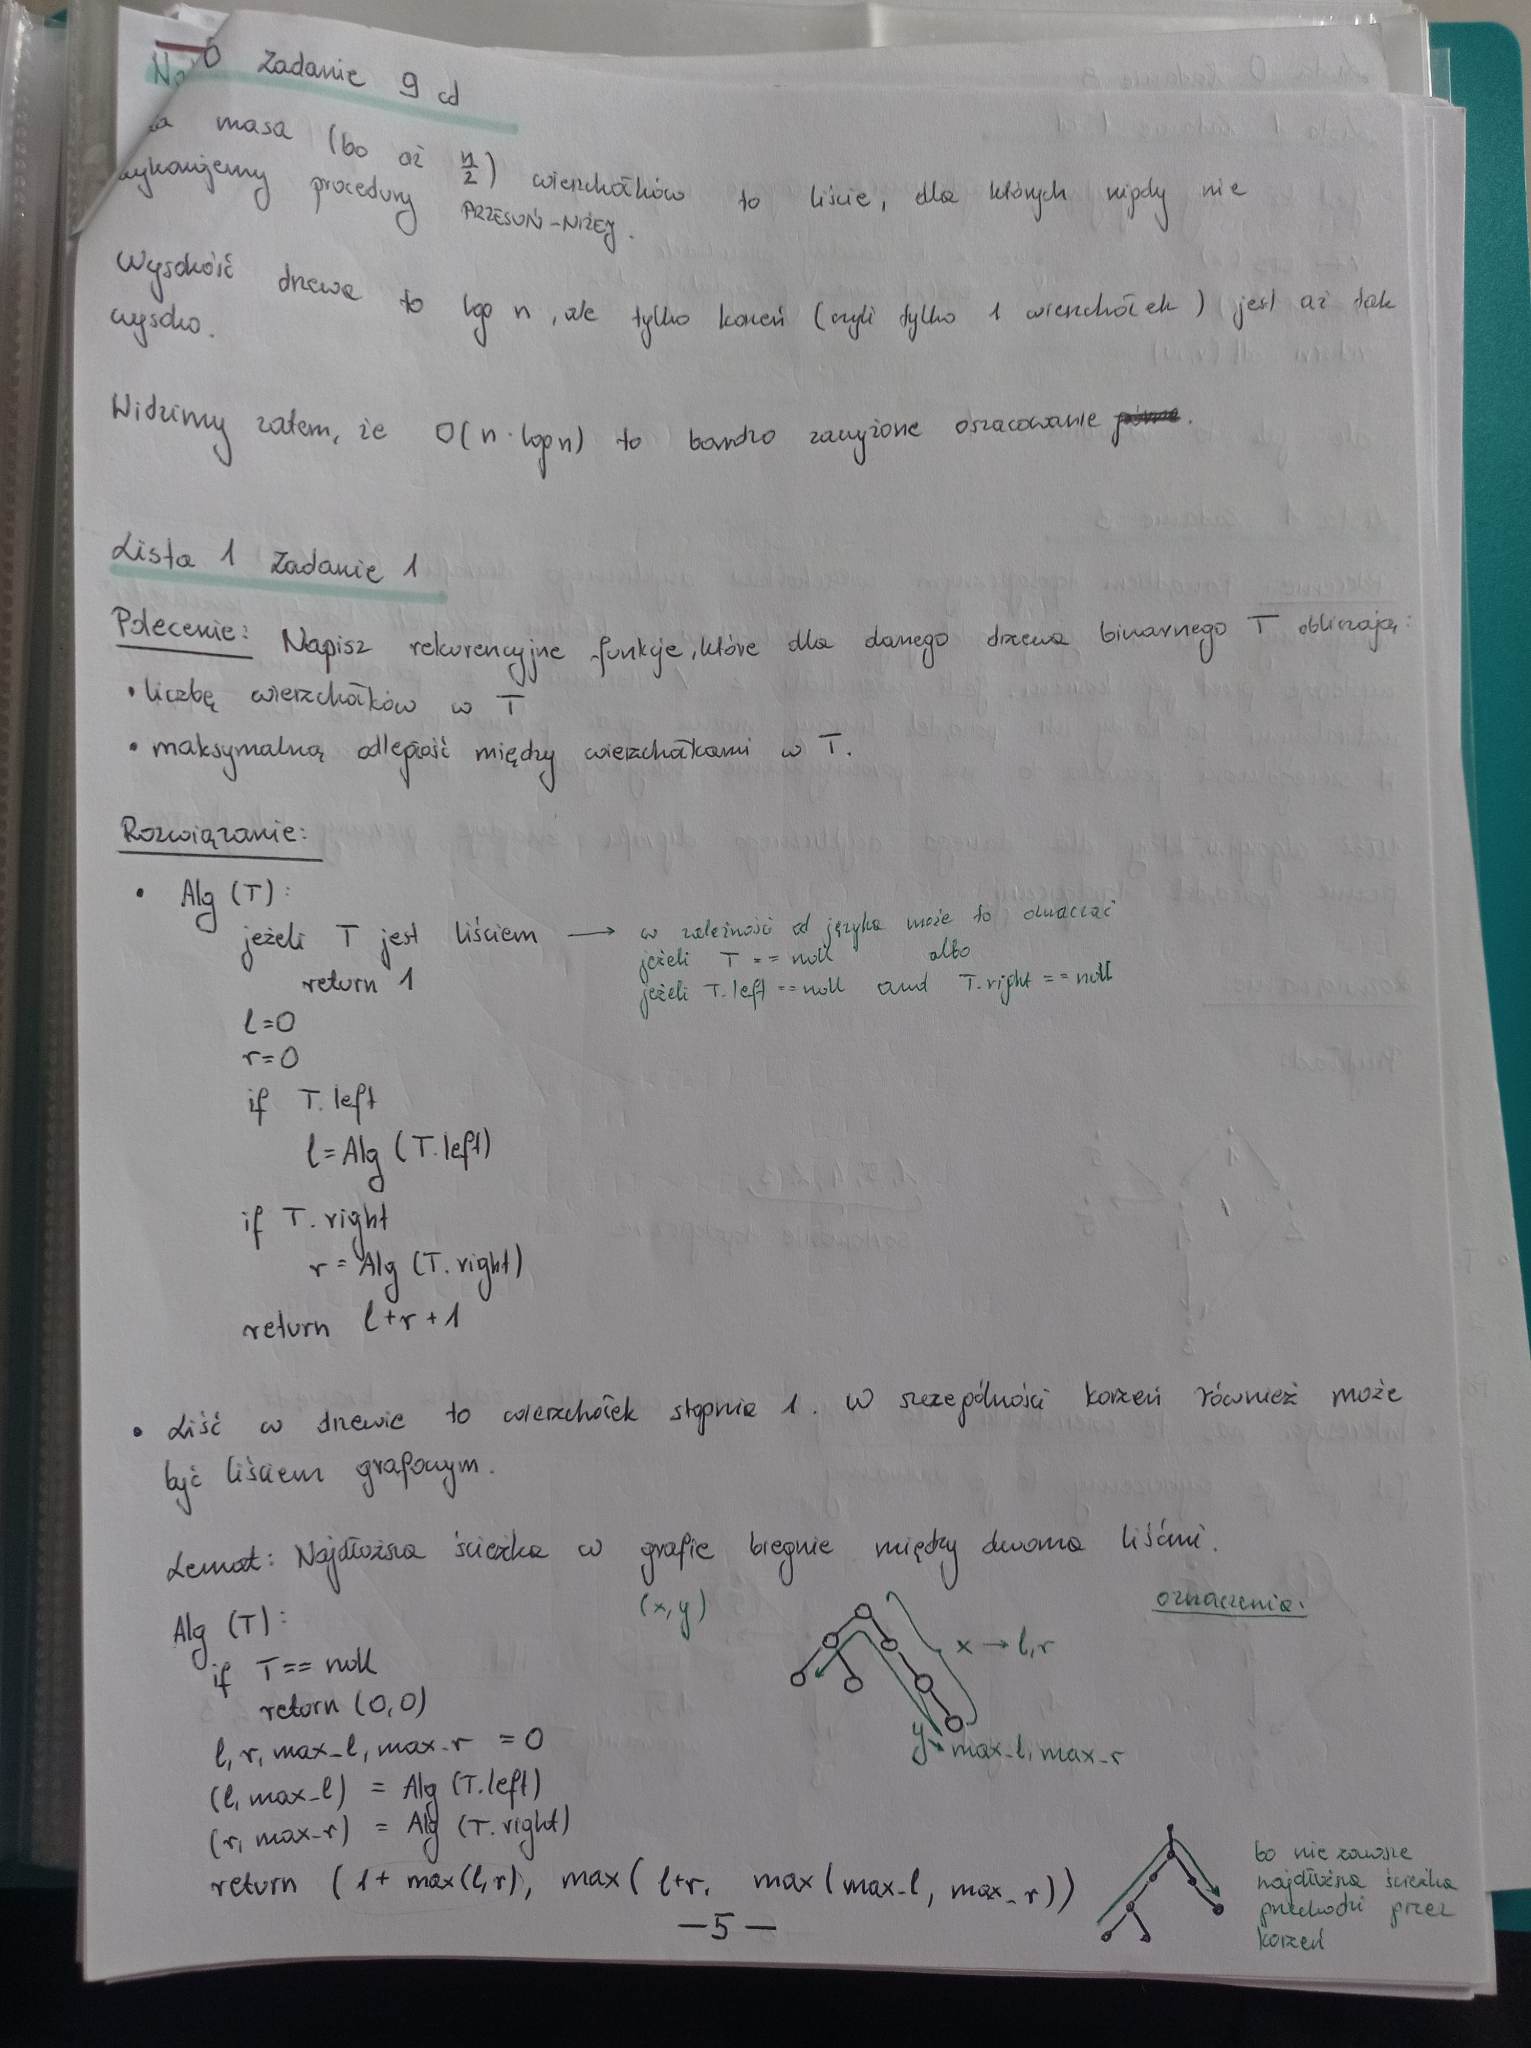 0 Zadanie 9 cd
masa (bo aż n/2) wierzchołków to liście, dla których nigdy nie
wykonujemy procedury PRZESUŃ-NIŻEJ.
Wysokość drzewa to log n, ale tylko korzeń (czyli tylko 1 wierzchołek) jest aż tak
wysoko.
Widzimy zatem, że O(n·log n) to bardzo zawyżone oszacowanie.
Lista 1 Zadanie 1
Polecenie: Napisz rekurencyjne funkcje, które dla danego drzewa binarnego T obliczają:
• liczbę wierzchołków w T
• maksymalną odległość między wierzchołkami w T.
Rozwiązanie:
• Alg (T):
jeżeli T jest liściem → w zależności od języka może to oznaczać
jeżeli T == null albo
return 1
jeżeli T.left == null and T.right == null
l=0
r=0
if T.left
l=Alg (T.left)
if T.right
r=Alg (T.right)
return l+r+1
• Liść w drzewie to wierzchołek stopnia 1. W szczególności korzeń również może
być liściem grafowym.
Lemat: Najdłuższa ścieżka w grafie biegnie między dwoma liśćmi.
Alg (T):
(x,y)
oznaczenia:
if T== null
x → l,r
return (0,0)
l, r, max_l, max_r = 0
y → max_l, max_r
(l, max_l) = Alg (T.left)
(r, max_r) = Alg (T.right)
return (1+ max(l,r), max( l+r, max(max_l, max_r))
bo nie zawsze
najdłuższa ścieżka
przechodzi przez
korzeń
-5-